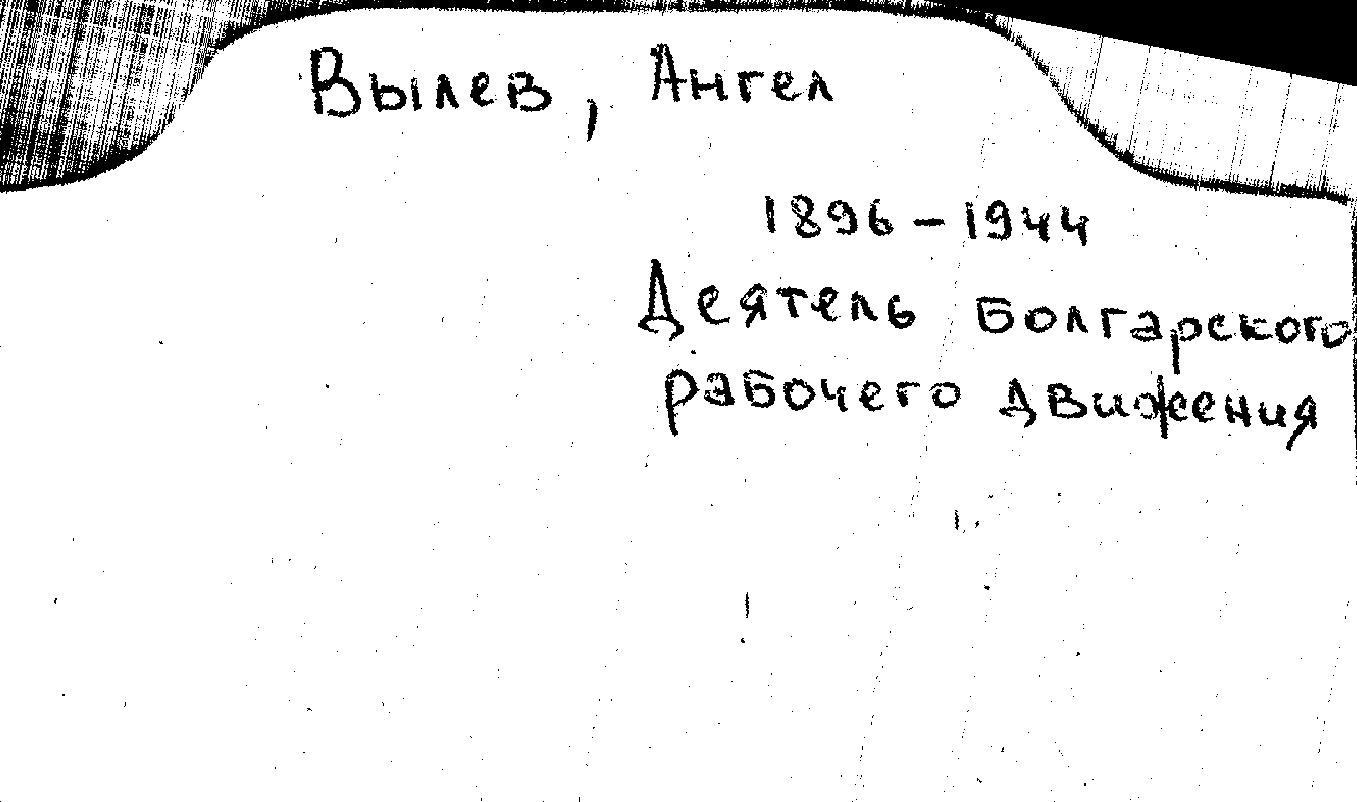 Вылев, Ангел
1896 – 1944
Деятель болгарского
рабочего движения